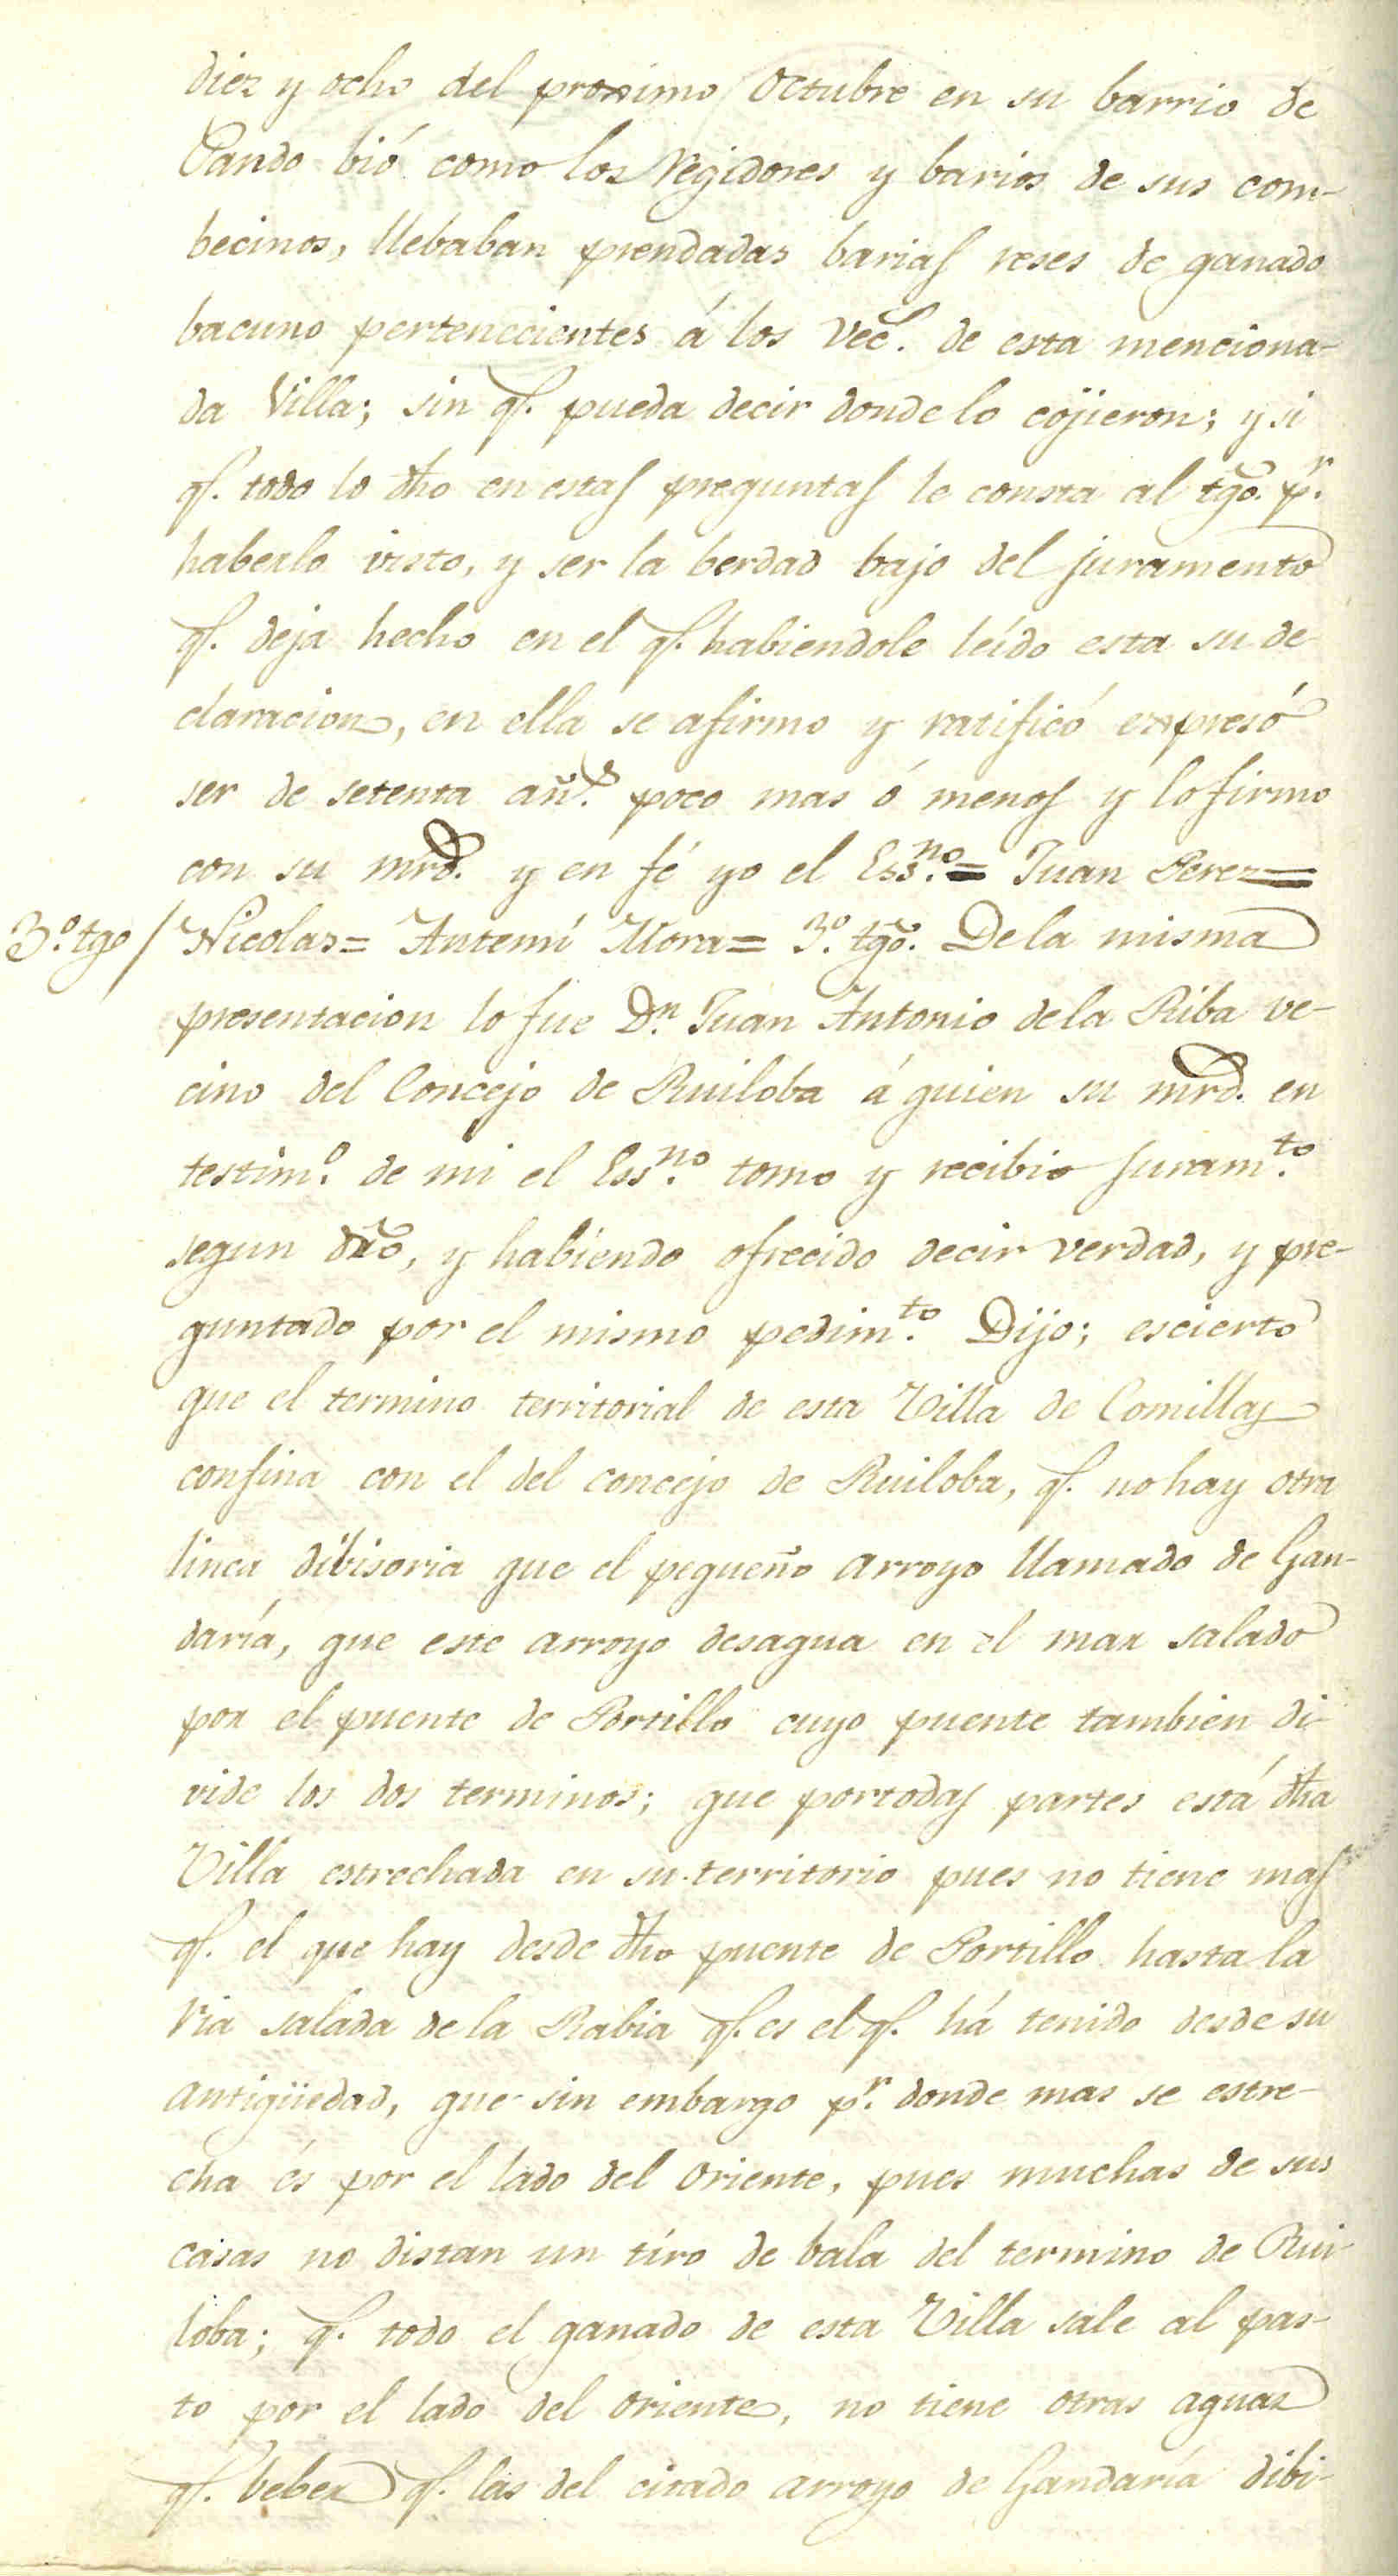 diez y ocho del proximo Octubre en su barrio de
Pando bió como los Regidores y barios de sus com-
becinos, llebaban prendadas barias reses de ganado
bacuno pertenecientes á los Vec.s de esta menciona-
da Villa; sin q.e pueda decir donde lo cojieron; y si
q.e todo lo dho en estas preguntas le consta al tgo. p.r
haberlo visto, y ser la berdad bajo del juramento
q.e deja hecho en el q.e habiendole leído esta su de
claracion, en ella se afirmo y ratificó expresó
ser de setenta añ.s poco mas ó menos y lo firmo
con su mrd. y en fé yo el Ess.no = Juan Perez =
3.o tgo / Nicolas = Antemí Mora = 3.o tgo. De la misma
presentacion lo fue D.n Juan Antonio de la Riba ve-
cino del Concejo de Ruiloba á quien su mrd. en
testim.o de mi el Ess.no tomo y recibio juram.to
segun dro, y habiendo ofrecido decir verdad, y pre-
guntado por el mismo pedim.to Dijo; es cierto
que el termino territorial de esta Villa de Comillas
confina con el del concejo de Ruiloba, q.e no hay otra
linea dibisoria que el pequeño arroyo llamado de Gan-
daría, que este arroyo desagua en el mar salado
por el puente de Portillo cuyo puente tambien di-
vide los dos terminos; que por todas partes está dha
Villa estrechada en su territorio pues no tiene mas
q.e el que hay desde dho puente de Portillo hasta la
Ria salada de la Rabia q.e es el q.e há tenido desde su
antigüedad, que sin embargo p.r donde mas se estre-
cha és por el lado del oriente, pues muchas de sus
casas no distan un tiro de bala del termino de Rui-
loba; q.e todo el ganado de esta Villa sale al pas-
to por el lado del oriente, no tiene otras aguas
q.e beber q.e las del citado arroyo de Gandaría dibi-